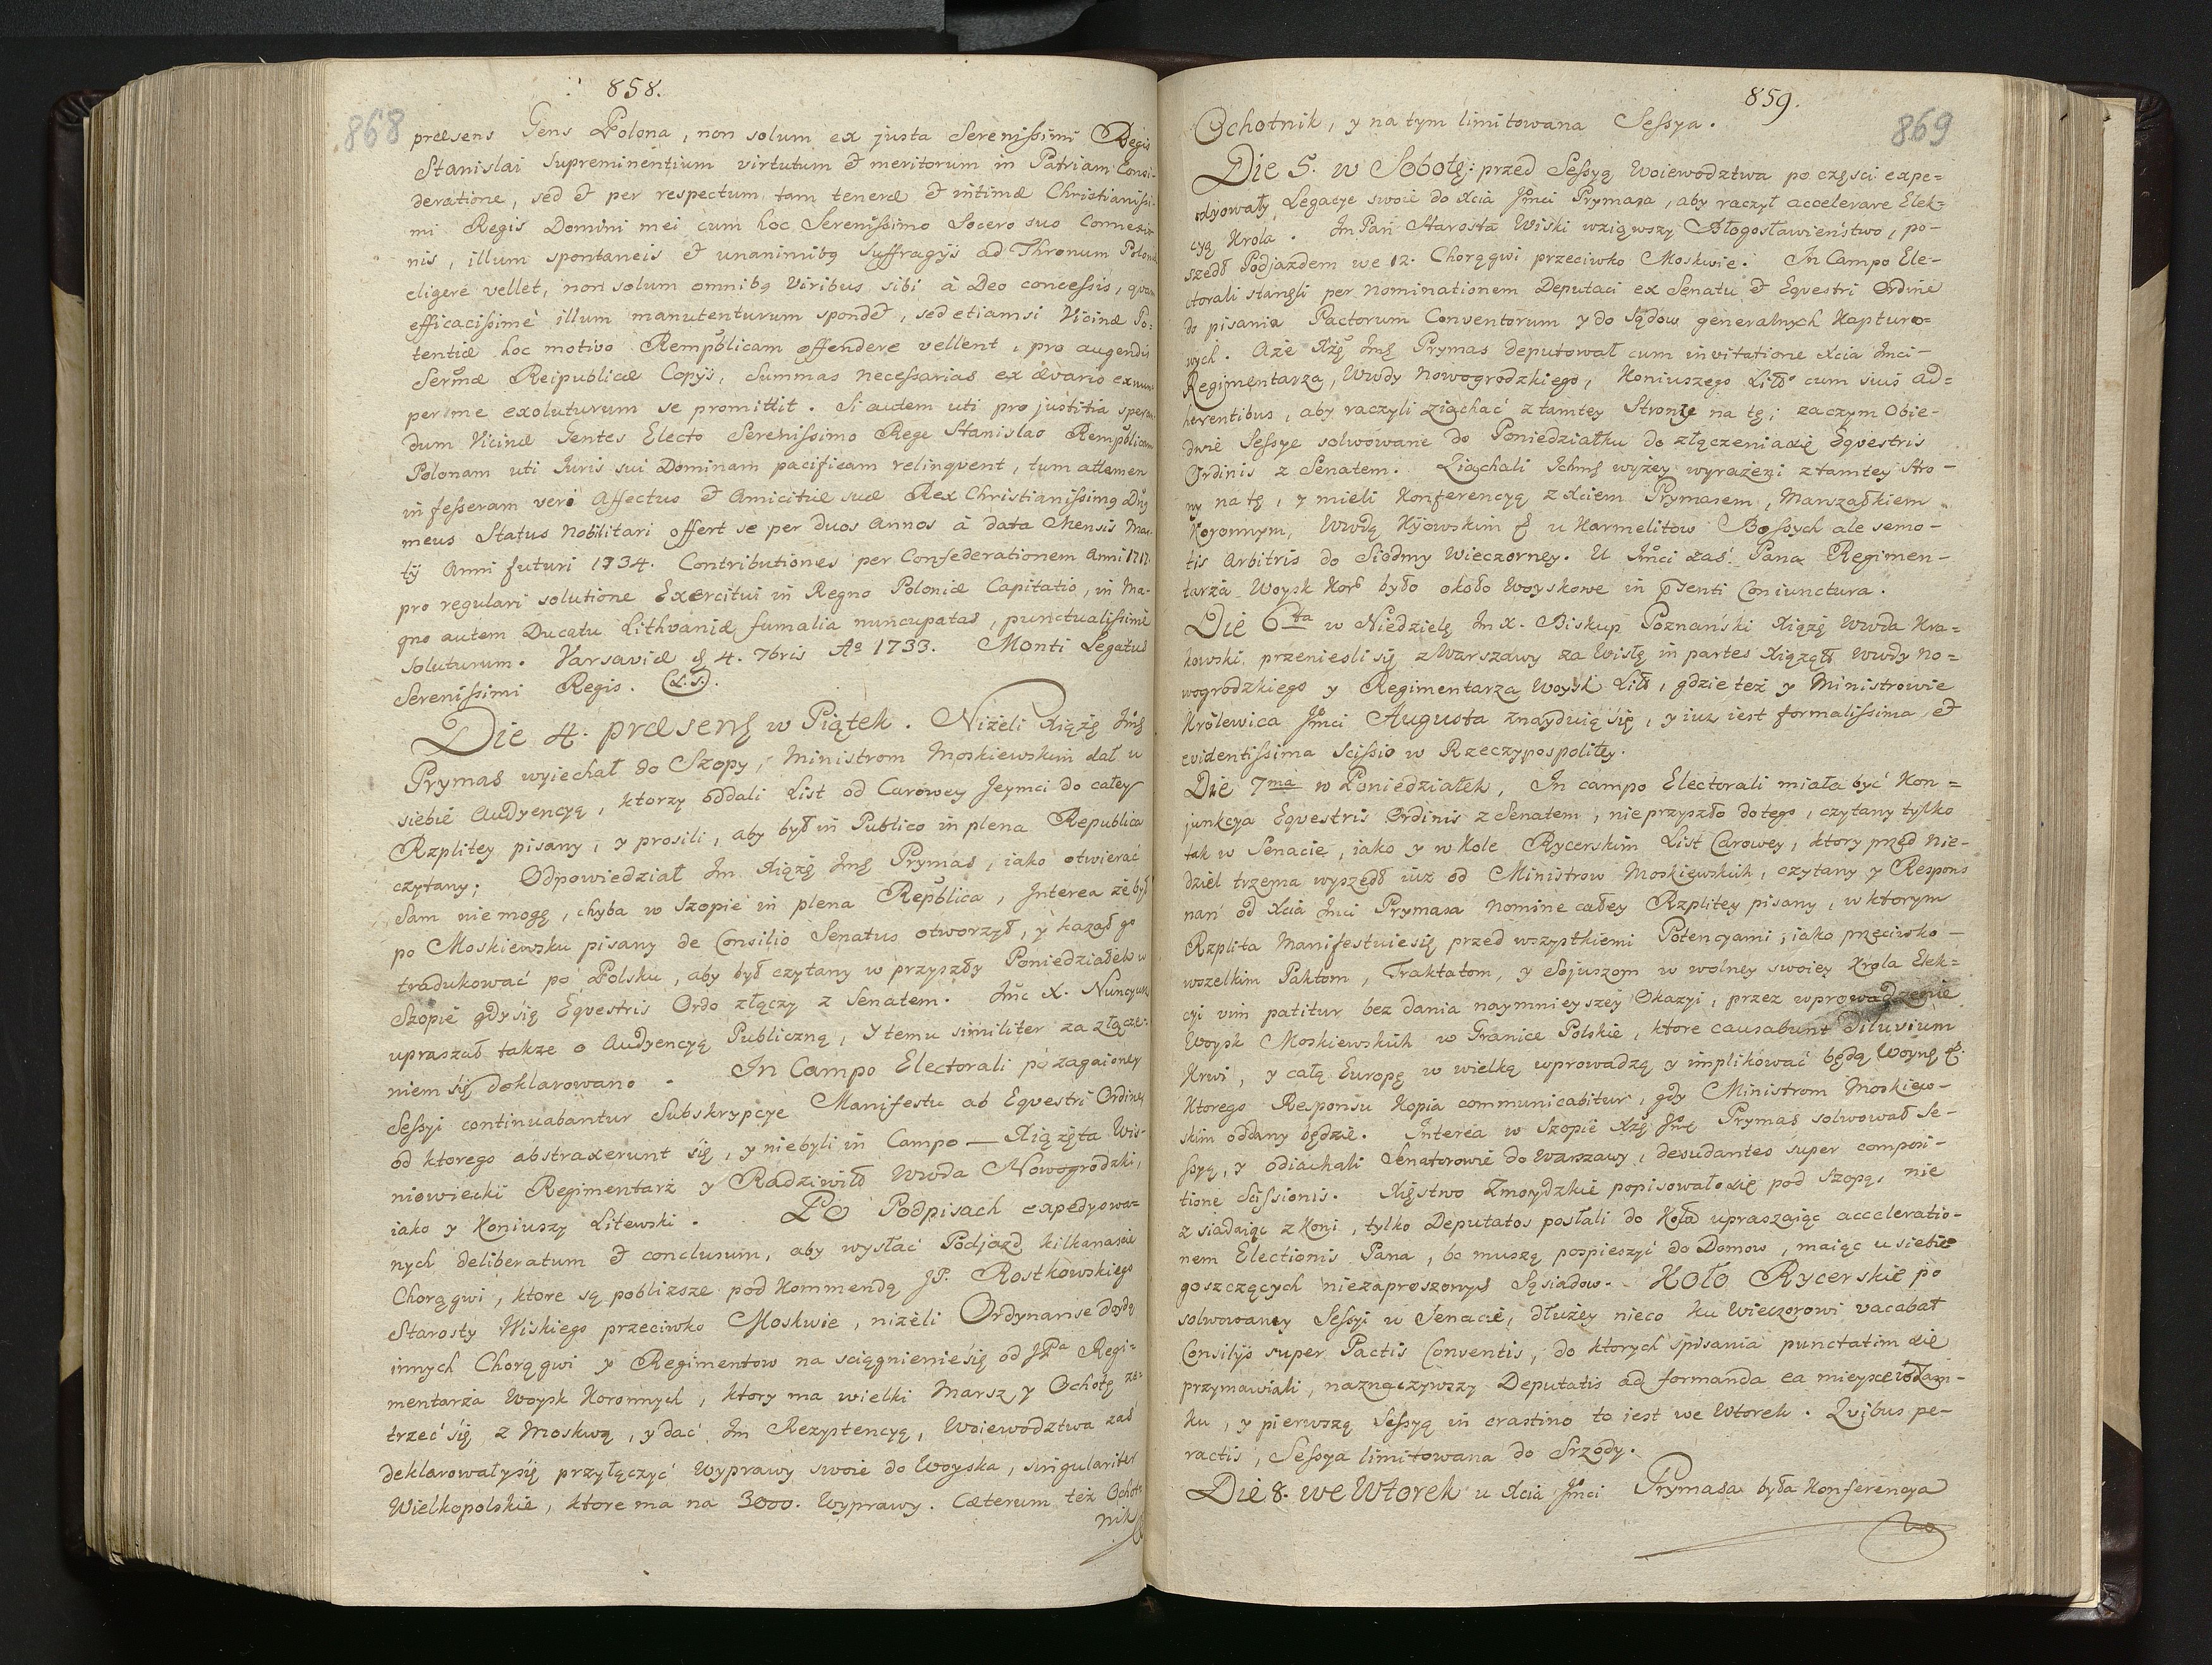 858.
868
præsens Gens Polona, non solum ex justa Serenissimi Regis
Stanislai Supreminentium virtutum & meritorum in Patriam Consi-
deratione, sed & per respectum tam teneræ & intimæ Christianissi-
mi Regis Domini mei cum hoc Serenissimo Socero suo Connexio
nis, illum spontaneis & unanimibq Suffragijs ad Thronum Polon
eligere vellet, non solum omnibq Viribus sibi à Deo concessis, quam
efficacissimè illum manutenturum spondet, sed etiamsi Vicinæ Po-
tentiæ hoc motivo Rempublicam offendere vellent, pro augendis
Sermæ Reipublicæ Copijs, Summas necessarias ex ævario
per me exoluturum se promittit. Si autem uti pro justitia speran
dum Vicinæ Gentes Electo Serenissimo Rege Stanislao Rempublicam
Polonam uti Juris sui Dominam pacificam relinqvent, tum attamen
in fesseram veri Affectus & Amicitiæ suæ Rex Christianissimq Dnq
meus Status Nobilitari offert se per duos Annos à data Mensis Mar-
tij Anni futuri 1734. Contributiones per Confederationem Anni 1717.
pro regulari solutione Exercitui in Regno Poloniæ Capitatio, in Ma-
gno autem Ducatu Lithvaniæ fumalia nuncupatas, punctualissimè
soluturum. Varsaviæ d. 4. 7bris Aº 1733. Monti Legatus
Serenissimi Regis. (L.S.).
Die 4. præsens w Piątek. Niżeli Xiążę Jmę
Prymas wyiechał do Szopy, Ministrom Moskiewskim dał u
siebie Audyencyą, ktorzy oddali List od Carowey Jeymci do całey
Rzplitey pisany, y prosili, aby był in Publico in plena Republica
czytany; Odpowiedział Jm. Xiążę Jmę Prymas, iako otwierać
Sam nie mogę, chyba w Szopie in plena Republica, Interea że był
po Moskiewsku pisany de Consilio Senatus otworzył, y kazał go
tradukować po Polsku, aby był czytany w przyszły Poniedziałek w
Szopie gdy się Eqvestris Ordo złączy z Senatem. Jmc X. Nuncyusz
upraszał także o Audyencyą Publiczną, Y temu similiter za złącze-
niem się deklarowano. In Campo Electorali po zagaioney
Sessyi continuabantur Subskrypcye Manifestu ab Eqvestri Ordine,
od ktorego abstraxerunt się, y niebyli in Campo — Xiążęta Wis-
niowiecki Regimentarz y Radziwiłł Wwda Nowogrodzki,
iako y Koniuszy Litewski. Po Podpisach expedyowa-
nych deliberatum & conclusum, aby wysłać Podjazd kilkanascie
Chorągwi, ktore są pobliższe pod Kommendą JP. Rostkowskiego
Starosty Wiskiego przeciwko Moskwie, niżeli Ordynanse doydą
innych Chorągwi y Regimentow na sciągnienie się od JPa Regi-
mentarza Woysk Koronnych, ktory ma wielki Marsz y Ochotę ze-
trzeć się z Moskwą, y dać Im Rezystencyą, Woiewodztwa zaś
deklarowały się przyłączyć Wyprawy swoie do Woyska, singulariter
Wielkopolskie, ktore ma na 3000. Wyprawy. Cæterum też Ochot-
nik
859.
869
Ochotnik, y na tym limitowana Sessya.
Die 5. w Sobotę: przed Sessyą Woiewodztwa po części expe-
dyowały Legacye swoie do Xcia Jmci Prymasa, aby raczył accelerare Elek-
cyą Krola. Jm Pan Starosta Wiski wziąwszy Błogosławieństwo, po-
szedł Podjazdem we 12. Chorągwi przeciwko Moskwie. In Campo Ele-
ctorali stanęli per Nominationem Deputaci ex Senatu & Eqvestri Ordine
do pisania Pactorum Conventorum y do Sądow generalnych Kapturo-
wych. Aże Xżę Jmę Prymas deputował cum invitatione Xcia Jmci-
Regimentarza, Wwdy Nowogrodzkiego, Koniuszego Litt° cum suis ad-
herentibus, aby raczyli ziachać z tamtey Strony na tę; zaczym Obie-
dwie Sessye solwowane do Poniedziałku do złączenia się Eqvestris
Ordinis z Senatem. Ziachali Ichmę wyżey wyrażeni z tamtey Stro-
ny na tę, y mieli Konferencyą z Xciem Prymasem, Marszałkiem
Koronnym, Wwdą Kijowskim & u Karmelitow Bossych ale semo-
tis arbitris do Siodmy Wieczorney. U Jmci zaś Pana Regimen-
tarza Woysk Kor° było około Woyskowe in pręsenti Coniunctura.
Die 6ta w Niedzielę Jm X. Biskup Poznański Xiążę Wwda Kra-
kowski, przenieśli się z Warszawy za Wisłę in partes Xiążąt Wwdy No-
wogrodzkiego y Regimentarza Woysk Litt, gdzie też y Ministrowie
Krolewica Jmci Augusta znayduią się, y iuż iest formalissima, &
evidentissima scissio w Rzeczypospolitey.
Die 7ma w Poniedziałek, In campo Electorali miała być Kon-
junkcya Eqvestris Ordinis z Senatem, nie przyszło do tego, czytany tylko
tak w Senacie, iako y w Kole Rycerskim List Carowey, ktory przed Nie-
dziel trzema wyszedł iuż od Ministrow Moskiewskich, czytany y Respons
nań od Xcia Jmci Prymasa Nomine całey Rzplitey pisany, w ktorym
Rzplita Manifestuie się przed wszystkiemi Potencyami, iako przeciwko-
wszelkim Paktom, Traktatom, y Sojuszom w wolney swoiey Krola Elek-
cyi vim patitur bez dania naymnieyszey Okazyi, przez wprowadzenie
Woysk Moskiewskich w Granice Polskie, ktore causabunt Diluvium
Krwi, y całą Europę w wielką wprowadzą y implikować będą Woynę &.
Ktorego Responsu Kopia communicabitur, gdy Ministrom Moskiew-
skim oddany będzie. Interea w Szopie Xżę Jmę Prymas solwował Se-
ssyą, y odiachali Senatorowie do Warszawy, desudantes super composi-
tione Scissionis. Xięstwo Zmoydzkie popisowało się pod Szopą, nie
z siadaiąc z Koni, tylko Deputatos posłali do Koła upraszaiąc acceleratio-
nem Electionis Pana, bo muszą pospieszyć do Domow, maiąc u siebie
goszczących niezaproszonych Sąsiadow. Koło Rycerskie po
solwowaney Sessyi w Senacie, dłużey nieco ku Wieczorowi vacabat
Consilijs super Pactis Conventis, do ktorych spisania punctatim się
przymawiali, naznaczywszy Deputatis ad formanda ea mieysce w Zam-
ku, y pierwszą Sessyą in crastino to iest we Wtorek. Qvibus pe-
ractis, Sessya limitowana do Srzody.
Die 8. we Wtorek u Xcia Jmci Prymasa była Konferencya